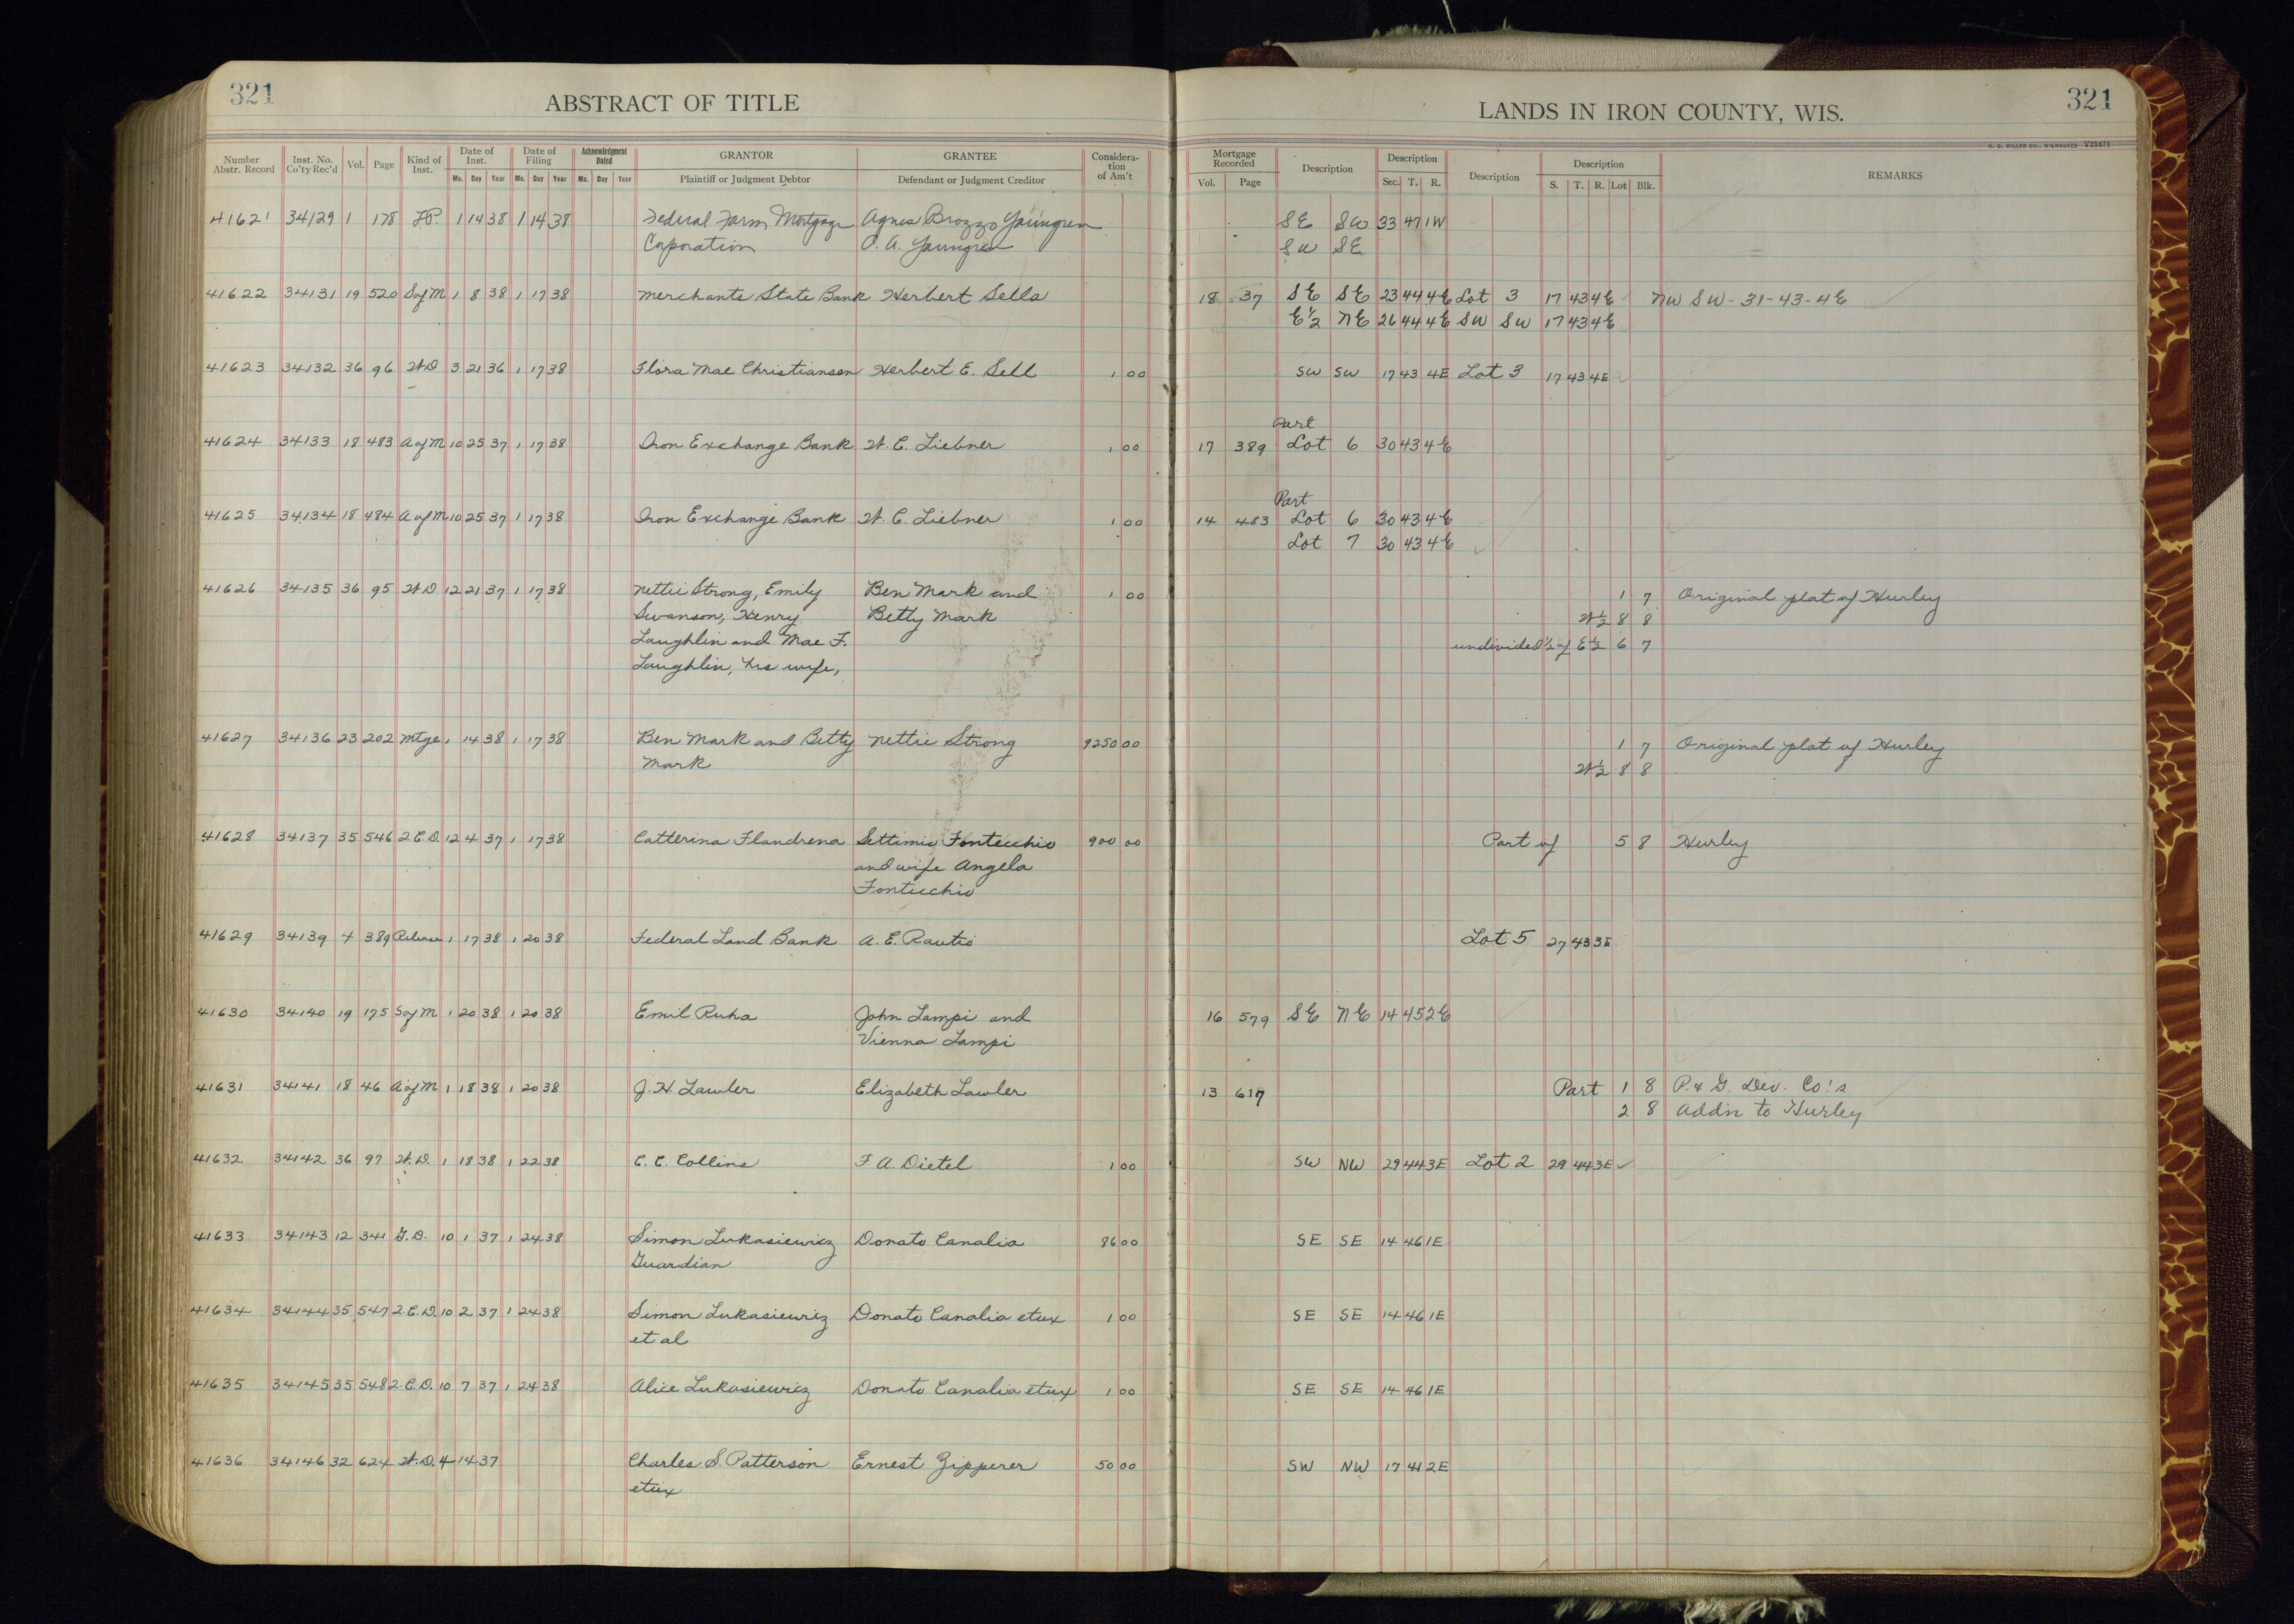 321
ABSTRACT OF TITLE
LANDS IN IRON COUNTY, WIS.
321
H. C. MILLER CO., MILWAUKEE V21671
Number Abstr. Record Inst. No. Co'ty Rec'd Vol. Page Kind of Inst. Date of Inst. Mo. Day Year Date of Filing Mo. Day Year Acknowledgment Dated Mo. Day Year GRANTOR Plaintiff or Judgment Debtor GRANTEE Defendant or Judgment Creditor Considera- tion of Am't Mortgage Recorded Vol. Page Description Description Sec. T. R. Description Description S. T. R. Lot Blk. REMARKS
41621 34129 1 178 1 14 38 1 14 38 Federal Farm Mortgage Agnes Brozzo Youngren SE SW 33 47 1W
Corporation O. A. Youngren SW SE
41622 34131 19 520 S of M 1 8 38 1 17 38 Merchants State Bank Herbert Sells 18 37 SE SE 23 44 4E Lot 3 17 43 4E NW SW - 31 - 43 - 4E
E½ NE 26 44 4E SW SW 17 43 4E
41623 34132 36 96 W D 3 21 36 1 17 38 Flora Mae Christiansen Herbert E. Sell 1 00 SW SW 17 43 4E Lot 3 17 43 4E
Part
41624 34133 18 483 A of M 10 25 37 1 17 38 Iron Exchange Bank W. C. Liebner 1 00 17 389 Lot 6 30 43 4E
Part
41625 34134 18 484 A of M 10 25 37 1 17 38 Iron Exchange Bank W. C. Liebner 1 00 14 483 Lot 6 30 43 4E
Lot 7 30 43 4E
41626 34135 36 95 W D 12 21 37 1 17 38 Nettie Strong, Emily Ben Mark and 1 00 1 7 Original plat of Hurley
Swanson, Henry Betty Mark W½ 8 8
Laughlin and Mae F. undivided ½ of E½ 6 7
Laughlin, his wife,
41627 34136 23 202 Mtge 1 14 38 1 17 38 Ben Mark and Betty Nettie Strong 9250 00 1 7 Original plat of Hurley
Mark W½ 8 8
41628 34137 35 546 2.C.D. 12 4 37 1 17 38 Catterina Flandrena Settimio Fontecchio 900 00 Part of 5 8 Hurley
and wife Angela
Fontecchio
41629 34139 4 389 Release 1 17 38 1 20 38 Federal Land Bank A. E. Rautio Lot 5 27 43 3E
41630 34140 19 175 S of M 1 20 38 1 20 38 Emil Ruha John Lampi and 16 579 SE NE 14 45 2E
Vienna Lampi
41631 34141 18 46 A of M 1 18 38 1 20 38 J. H Lawler Elizabeth Lawler 13 617 Part 1 8 P. & G. Dev. Co's
2 8 Addn to Hurley
41632 34142 36 97 W.D. 1 18 38 1 22 38 C. C. Collins F. A. Dietel 1 00 SW NW 29 44 3E Lot 2 29 44 3E
41633 34143 12 341 G.D. 10 1 37 1 24 38 Simon Lukasiewicz Donato Canalia 86 00 SE SE 14 46 1E
Guardian
41634 34144 35 547 2.C.D. 10 2 37 1 24 38 Simon Lukasiewicz Donato Canalia etux 1 00 SE SE 14 46 1E
et al
41635 34145 35 548 2.C.D. 10 7 37 1 24 38 Alice Lukasiewicz Donato Canalia etux 1 00 SE SE 14 46 1E
41636 34146 32 624 W.D. 4 14 37 Charles S. Patterson Ernest Zipperer 50 00 SW NW 17 41 2E
etux